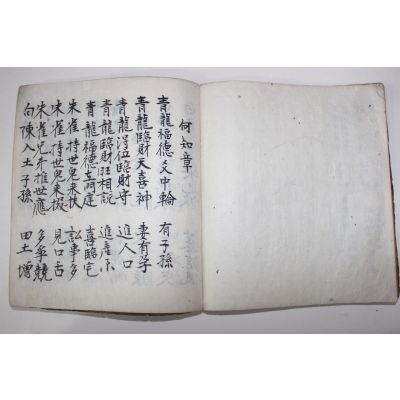 何知章
青龍福德爻中輪 有子孫
青龍臨財天喜神 妻有孕
青龍得位臨財守 進人口
青龍臨財旺相說 進產
青龍福德在門庭 喜臨宅
朱雀持世鬼来扶 訟事多
朱雀持世鬼来掇 見口舌
朱雀兄弟推世應 多爭競
向陳入土子孫 田土增